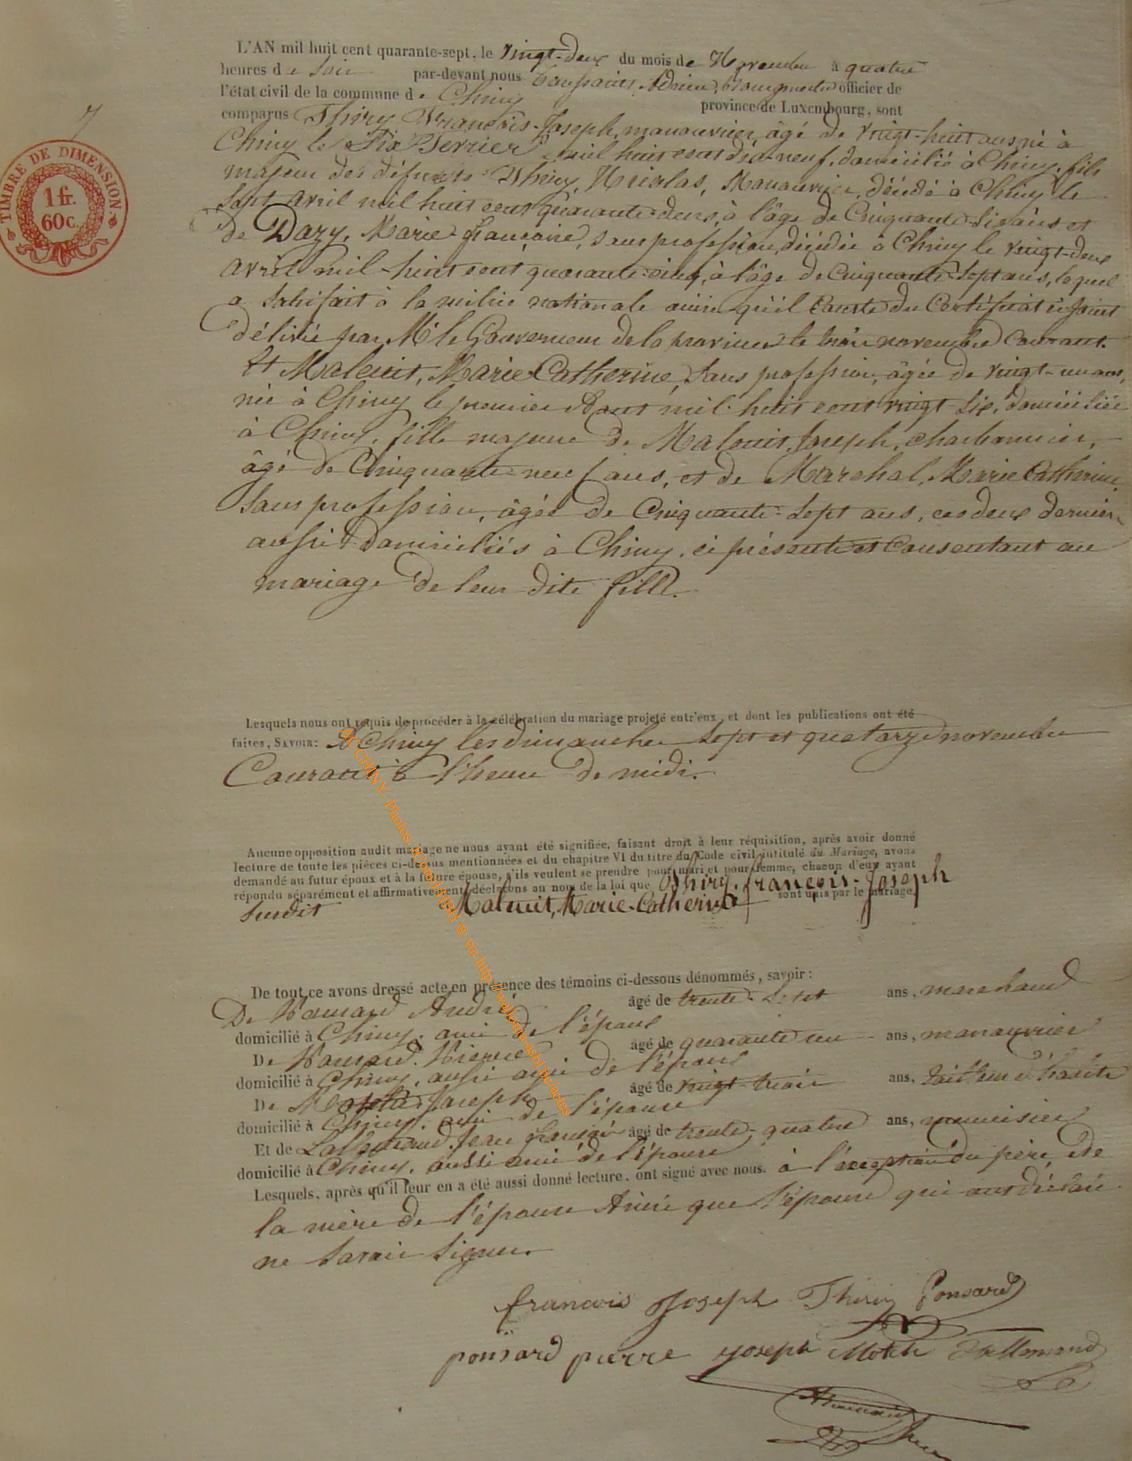 7
TIMBRE DE DIMENSION
1 fr.
60c.
L'AN mil huit cent quarante-sept, le vingt-deux du mois de Novembre à quatre
heures de Soir par-devant nous Adrien, Bourgmestre officier de
l'état civil de la commune de Chiny province de Luxembourg, sont
comparus Thiry François-Joseph, manouvrier, âgé de vingt-huit ans né à
Chiny le Six Février mil huit cent dix-neuf, domicilié à Chiny, fils
majeur des défunts Thiry, Nicolas, Manouvrier, décédé à Chiny le
Sept avril mil huit cent quarante-deux, à l'âge de Cinquante-six ans et
de Dazy, Marie françoise, Sans profession, décédée à Chiny le vingt-deux
avril mil-huit cent quarante-cinq, à l'âge de Cinquante-Sept ans, lequel
a Satisfait à la milice nationale ainsi qu'il Conste du Certificat ci-joint
délivré par Mr le Gouverneur de la province le trois novembre Courant.
Et Maleuit, Marie Catherine, Sans profession, âgée de vingt-un ans,
née à Chiny le premier Aout mil huit cent vingt Six, domiciliée
à Chiny, fille majeure de Maleuit, Joseph, charbonnier,
âgé de Cinquante-neuf ans, et de Marchal, Marie Catherine,
Sans profession, âgée de Cinquante-Sept ans, ces deux derniers
aussi domiciliés à Chiny, ci présents et Consentant au
mariage de leur dite fille.
Lesquels nous ont requis de procéder à la célébration du mariage projeté entr'eux, et dont les publications ont été
faites, SAVOIR: A Chiny les dimanches Sept et quatorze novembre
Courant à l'heure de midi.
Aucune opposition audit mariage ne nous ayant été signifiée, faisant droit à leur réquisition, après avoir donné
lecture de toute les pièces ci-dessus mentionnées et du chapitre VI du titre du Code civil intitulé du Mariage, avons
demandé au futur époux et à la future épouse, s'ils veulent se prendre pour mari et pour femme, chacun d'eux ayant
répondu séparément et affirmativement, déclarons au nom de la loi que Thiry, françois-Joseph
Susdit Maleuit, Marie-Catherine sont unis par le mariage.
De tout ce avons dressé acte en présence des témoins ci-dessous dénommés, savoir:
De Ponsard André âgé de trente-Sept ans, marchand
domicilié à Chiny, ami de l'époux
De Ponsard Pierre âgé de quarante un ans, manouvrier
domicilié à Chiny, aussi ami de l'époux
De Joseph âgé de vingt-trois ans, tailleur d'habits
domicilié à Chiny, ami de l'épouse
Et de Lallemand, Jean françois âgé de trente-quatre ans, menuisier
domicilié à Chiny, aussi ami de l'épouse
Lesquels, après qu'il leur en a été aussi donné lecture, ont signé avec nous. à l'exception du père et de
la mère de l'épouse Ainsi que l'épouse qui ont déclaré
ne Savoir Signer.
francois Joseph Thiry Ponsard
ponsard pierre joseph Lallemand